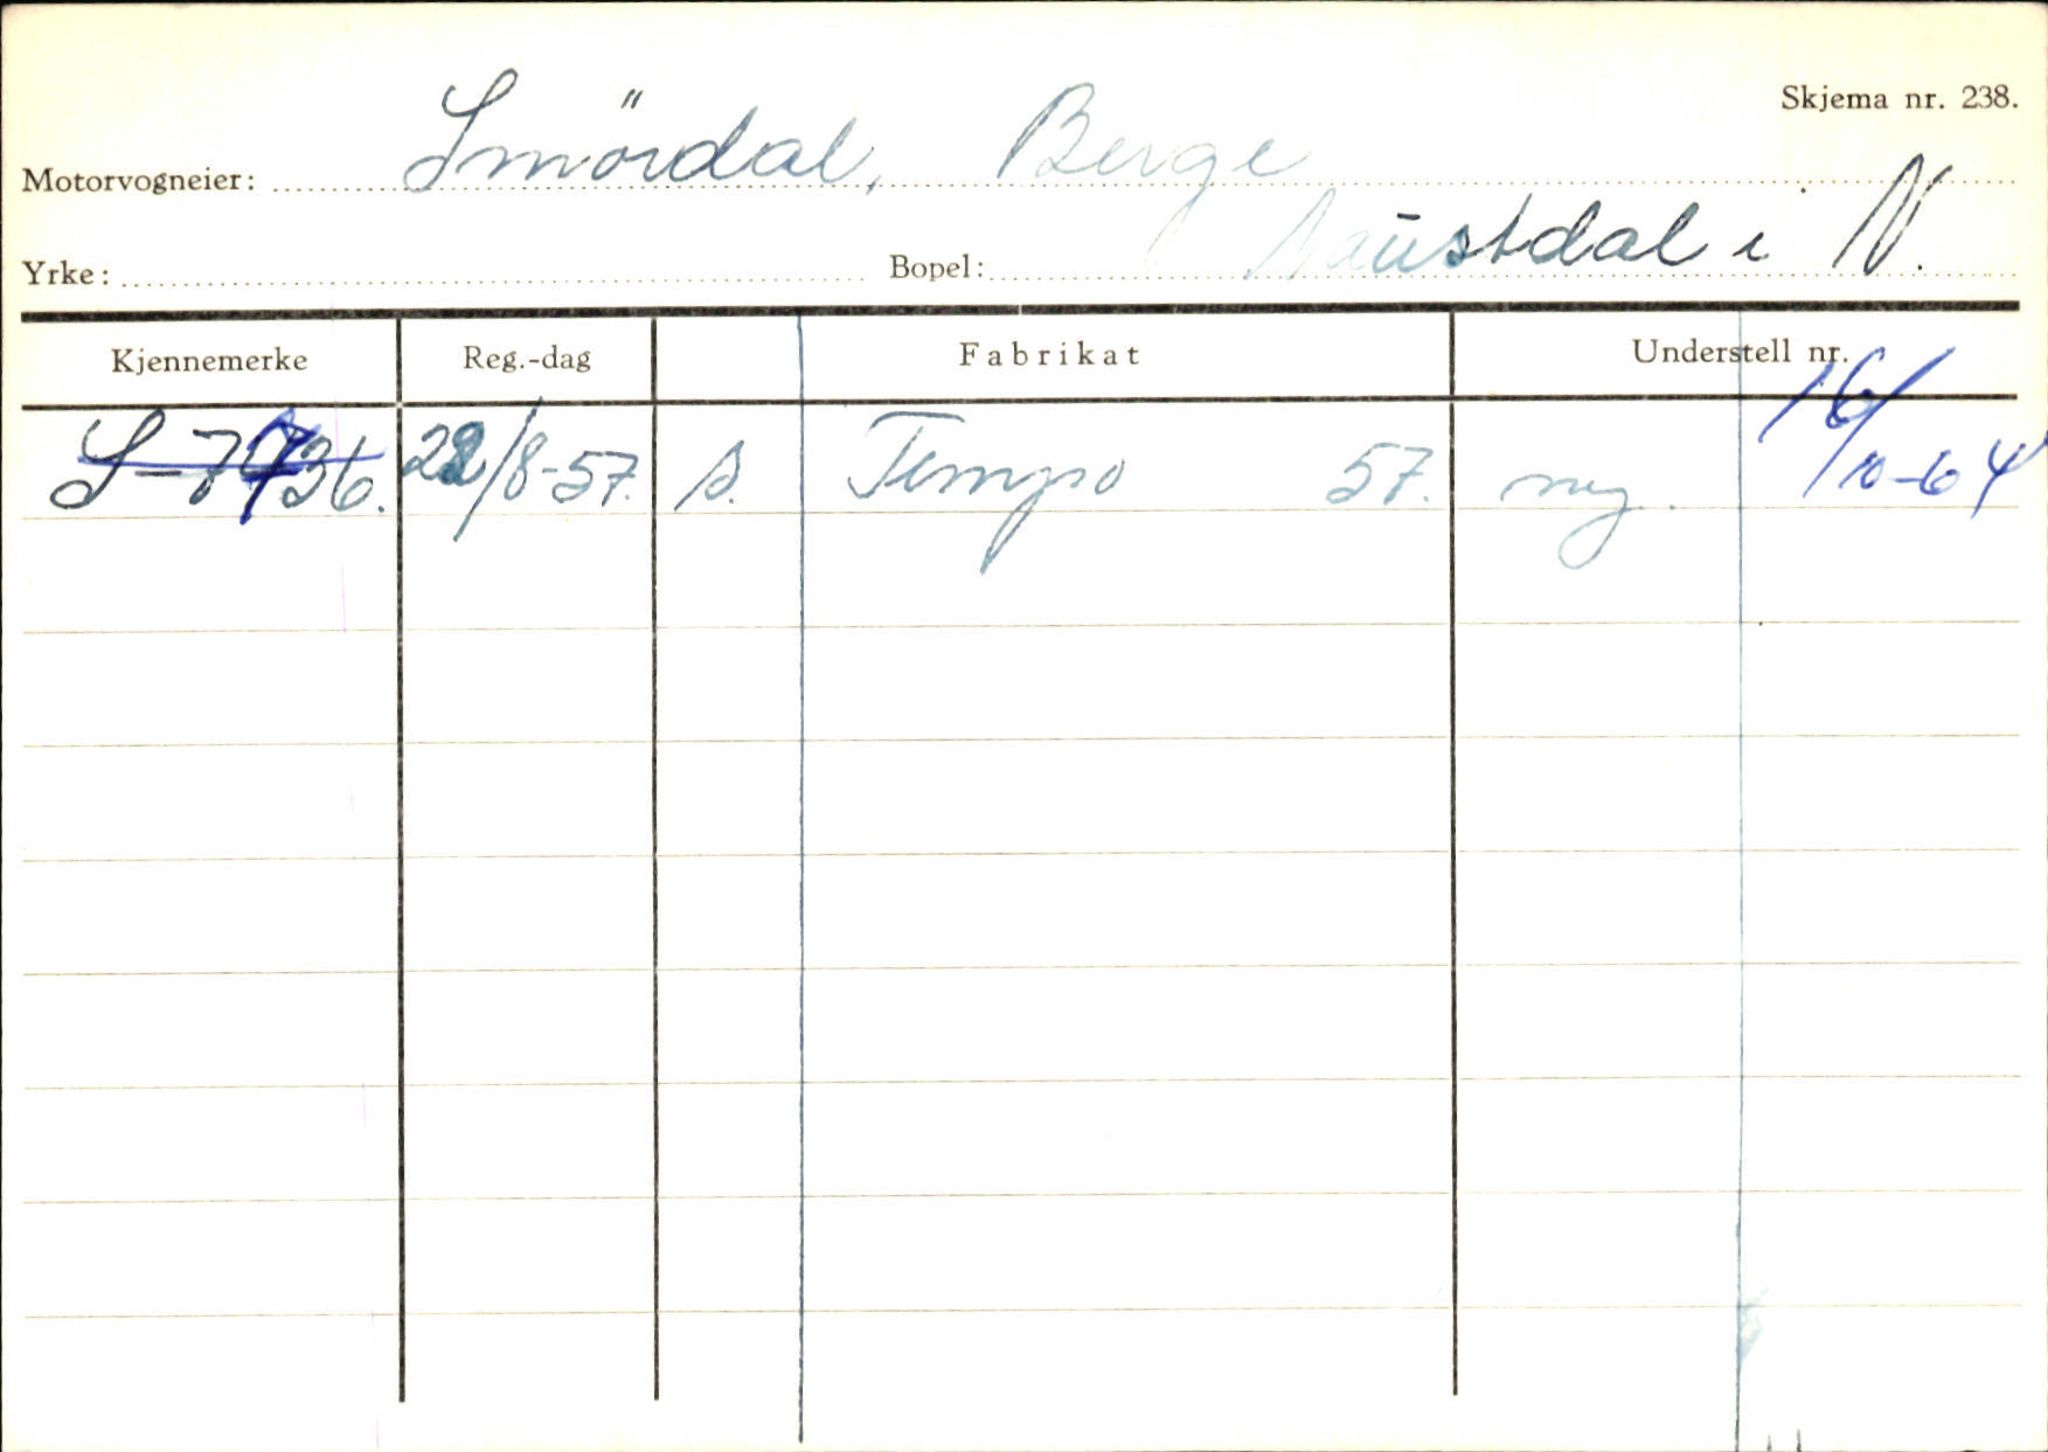 Skjema nr. 238.
Motorvogneier: Smördal, Berge
Yrke: Bopel: Naustdal i N.
Kjennemerke Reg.-dag Fabrikat Understell nr.
S-7736. 22/8-57. s. Tempo 57. ny. 16/10-64